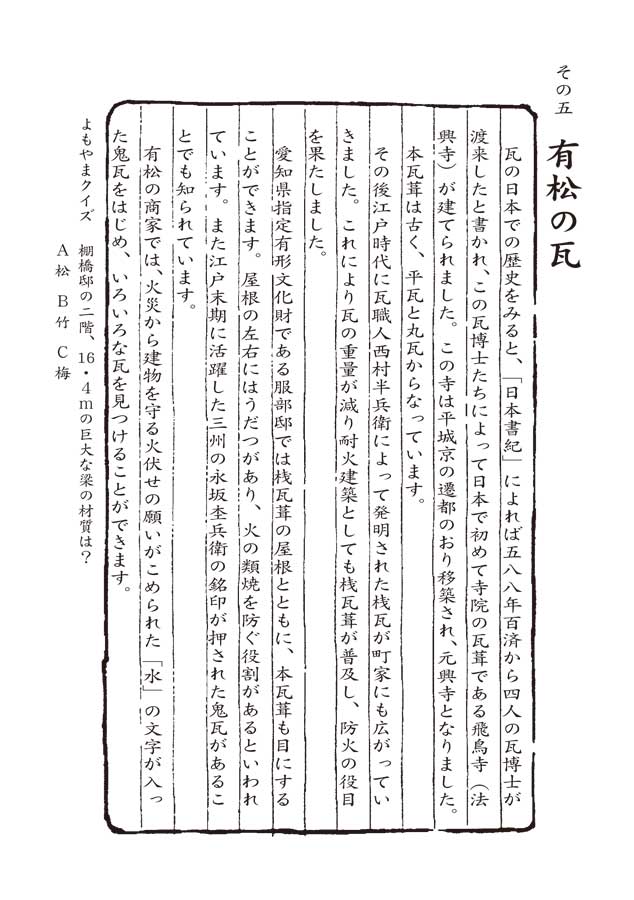 その五 有松の瓦
瓦の日本での歴史をみると、「日本書紀」によれば五八八年百済から四人の瓦博士が
渡来したと書かれ、この瓦博士たちによって日本で初めて寺院の瓦葺である飛鳥寺（法
興寺）が建てられました。この寺は平城京の遷都のおり移築され、元興寺となりました。
本瓦葺は古く、平瓦と丸瓦からなっています。
その後江戸時代に瓦職人西村半兵衛によって発明された桟瓦が町家にも広がってい
きました。これにより瓦の重量が減り耐火建築としても桟瓦葺が普及し、防火の役目
を果たしました。
愛知県指定有形文化財である服部邸では桟瓦葺の屋根とともに、本瓦葺も目にする
ことができます。屋根の左右にはうだつがあり、火の類焼を防ぐ役割があるといわれ
ています。また江戸末期に活躍した三州の永坂杢兵衛の銘印が押された鬼瓦があるこ
とでも知られています。
有松の商家では、火災から建物を守る火伏せの願いがこめられた「水」の文字が入っ
た鬼瓦をはじめ、いろいろな瓦を見つけることができます。
よもやまクイズ 棚橋邸の二階、16・4mの巨大な梁の材質は？
A松 B竹 C梅